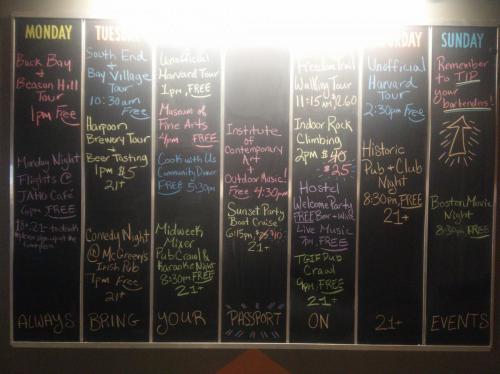 MONDAY
Back Bay
+
Beacon Hill
Tour
1pm Free
Monday Night
Flights @
JAHO Café
6pm, FREE
TUESDAY
South End
+
Bay Village
Tour
10:30am
Free
Harpoon
Brewery Tour
+
Beer Tasting
1pm $5
21+
Comedy Night
@ McGreevy's
Irish Pub
7pm Free
21+
Unofficial
Harvard Tour
1pm, FREE
Museum of
Fine Arts
4pm FREE
Cook with Us
Community Dinner
FREE 5:30pm
Midweek
Mixer
Pub Crawl &
Karaoke Night
8:30pm FREE
21+
Institute of
Contemporary
Art
+
Outdoor Music!
Free 4:30pm
Sunset Party
Boat Cruise
6:15pm,
21+
Freedom Trail
Walking Tour
11:15am
Indoor Rock
Climbing
2pm $40
$25
Hostel
Welcome Party
FREE Beer + Wine
Live Music
7pm, FREE
TGIF Pub
Crawl
9pm, FREE
21+
Unofficial
Harvard
Tour
2:30pm Free
Historic
Pub & Club
Night
8:30pm, FREE
21+
SUNDAY
Remember
to TIP
your
bartenders!
Boston Movie
Night
8:30pm FREE
ALWAYS BRING YOUR PASSPORT ON 21+ EVENTS